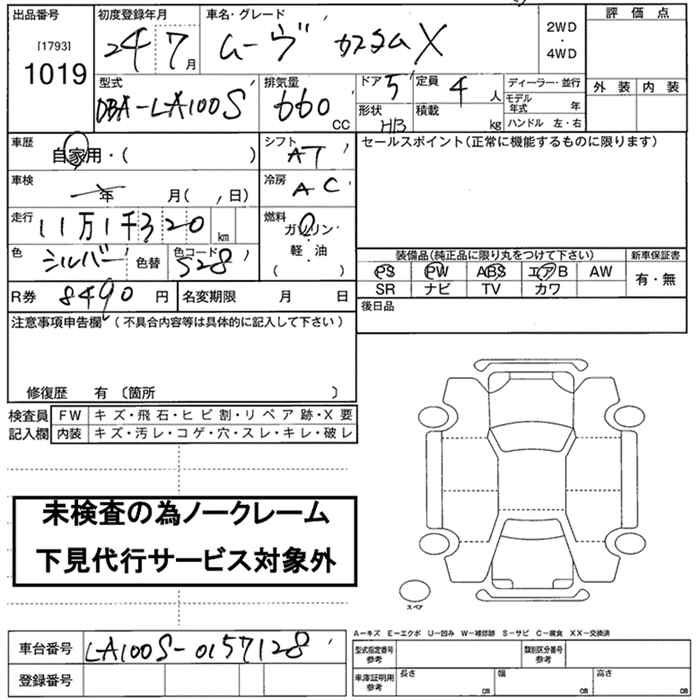 出品番号 初度登録年月 車名・グレード 評価点
[1793] 24 7月 ムーヴ カスタムX 2WD・4WD
1019
型式 排気量 ドア 5 定員 4人 ディーラー・並行 外装 内装
DBA-LA100S 660 CC 形状 H/B 積載 kg モデル年式 年
ハンドル 左・右
車歴 自家用・( ) シフト AT セールスポイント(正常に機能するものに限ります)
車検 年 月( 日) 冷房 AC
走行 11万1千320km 燃料 ガソリン・軽・油 ( )
色 シルバー 色替 色コード S28 装備品(純正品に限り丸をつけて下さい) 新車保証書
PS PW ABS エアB AW 有・無
SR ナビ TV カワ
R券 8490円 名変期限 月 日 後日品
注意事項申告欄(不具合内容等は具体的に記入して下さい)
修復歴 有〔箇所 〕
検査員 FW キズ・飛石・ヒビ割・リペア跡・X要
記入欄 内装 キズ・汚レ・コゲ・穴・スレ・キレ・破レ
未検査の為ノークレーム
下見代行サービス対象外
スペア
A-キズ E-エクボ U-凹み W-補修跡 S-サビ C-腐食 XX-交換済
車台番号 LA100S-0157128 型式指定番号 参考 類別区分番号 参考
登録番号 車庫証明用 参考 長さ cm 幅 cm 高さ cm